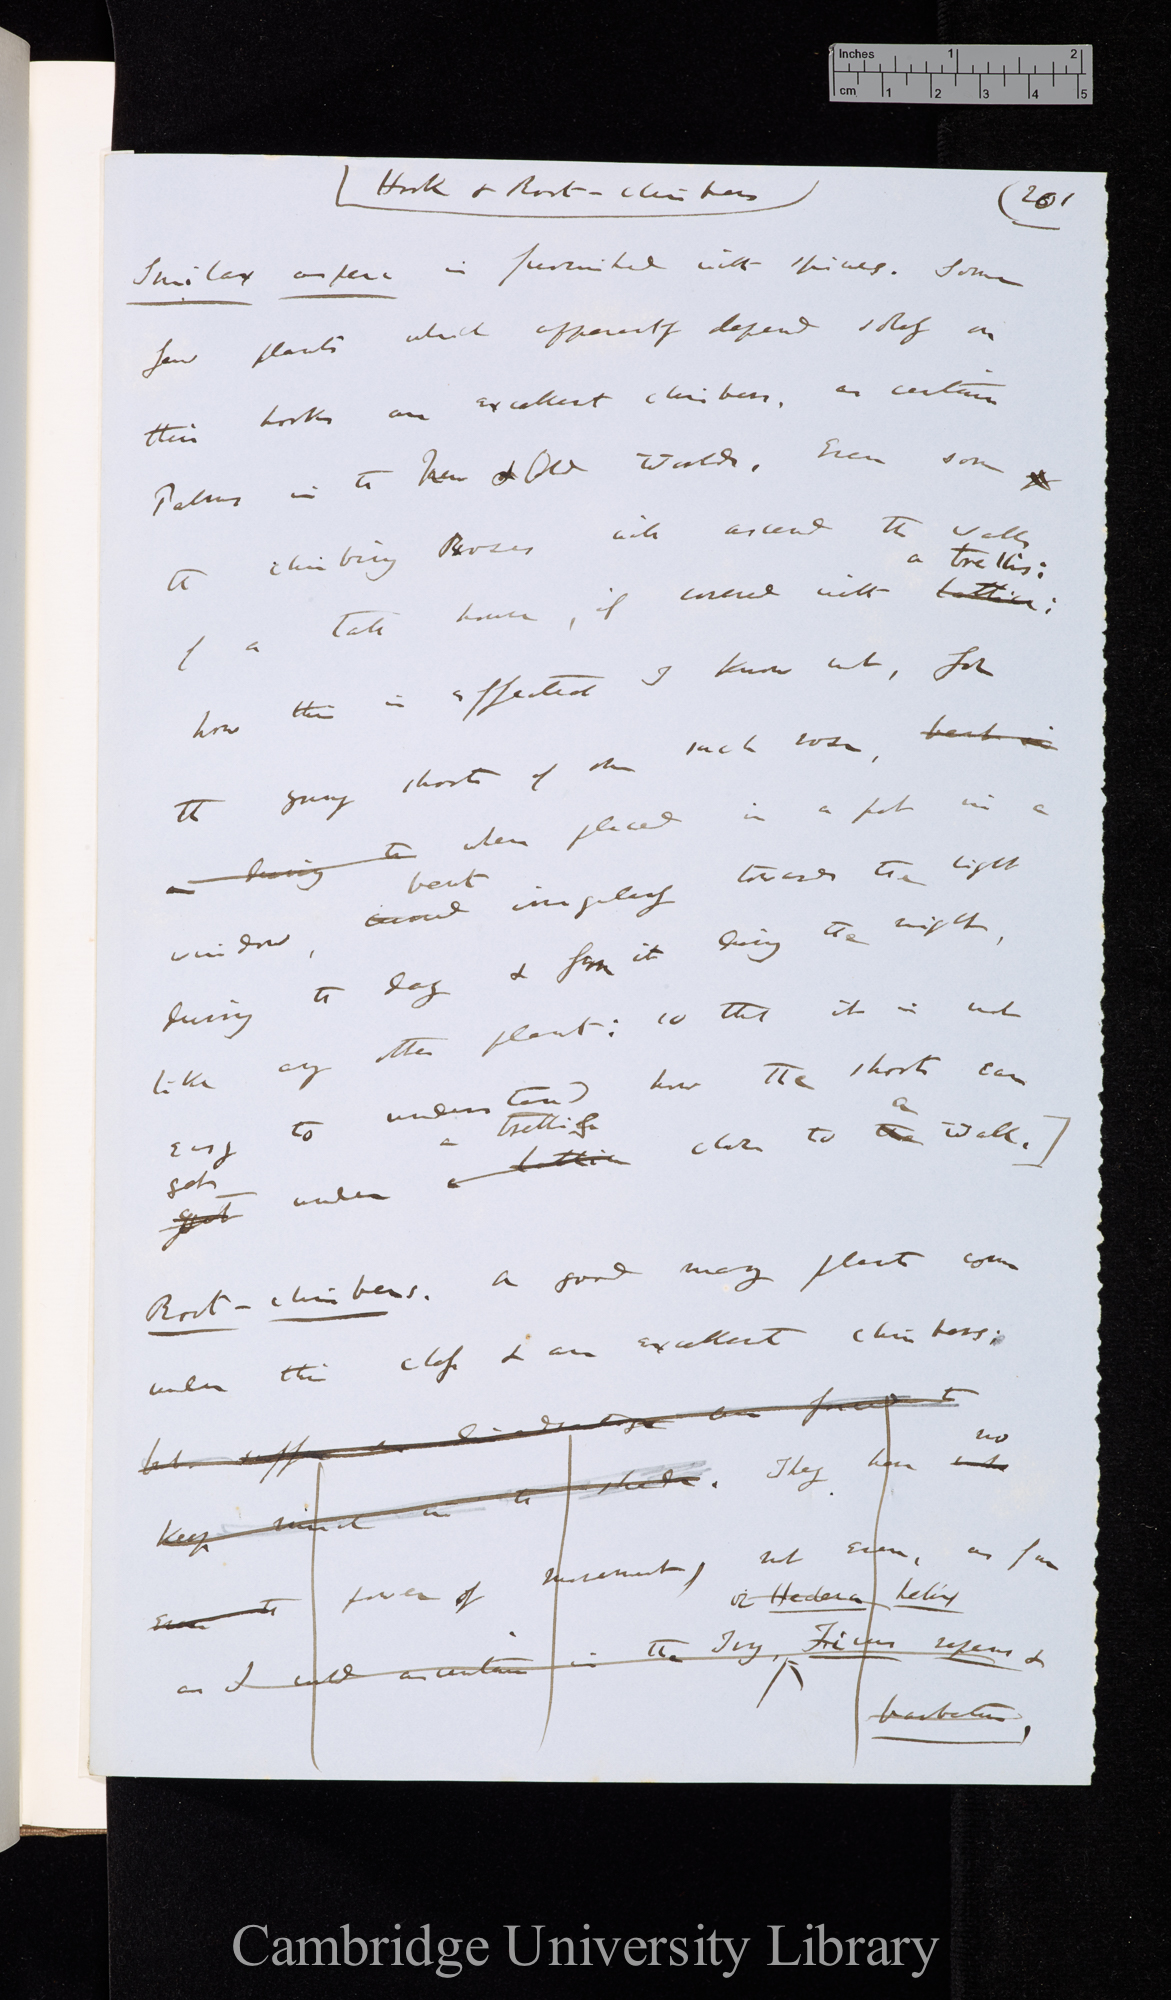 Inches 1 2
cm 1 2 3 4 5
Hook & Root-climbers
(201
Smilax aspera is furnished with spines. Some
few plants which apparently depend solely on
their hooks are excellent climbers, as certain
Palms in the New & Old Worlds. Even some
the climbing Roses will ascend the walls
a trellis:
of a tall house, if covered with lattice:
how this is effected I know not, for
the young shoots of one such rose, bent in
as during the when placed in a pot in a
bent
window, moved irregularly towards the light
during the day & from it during the night,
like any other plant: so that it is not
easy to understand how the shoots can
a trellis a
get
got under a lattice close to the wall.]
Root-climbers. A good many plants come
under this class & are excellent climbers;
but suffer the disadvantage are forced to
no
keep much in the shade. They have
even the power of movement, not even, as far
or Hedera helix
as I could ascertain in the Ivy, Ficus repens &
barbatus,
Cambridge University Library